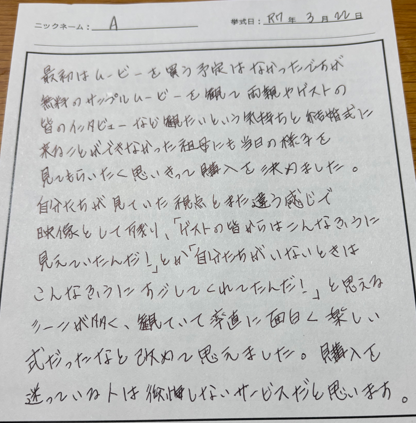 ニックネーム: A 挙式日: R7年 3月 22日
最初はムービーを買う予定はなかったですが
無料のサンプルムービーを観て両親やゲストの
皆のインタビューなど観たいという気持ちと結婚式に
来ることができなかった祖母にも当日の様子を
見てもらいたく思いきって購入を決めました。
自分たちが見ていた視点とまた違う感じで
映像として残り、「ゲストの皆からはこんなふうに
見えていたんだ!」とか「自分たちがいないときは
こんなふうに してくれてたんだ!」と思える
シーンが多く、観ていて率直に面白く楽しい
式だったなと改めて思えました。購入を
迷っている人は後悔しないサービスだと思います。